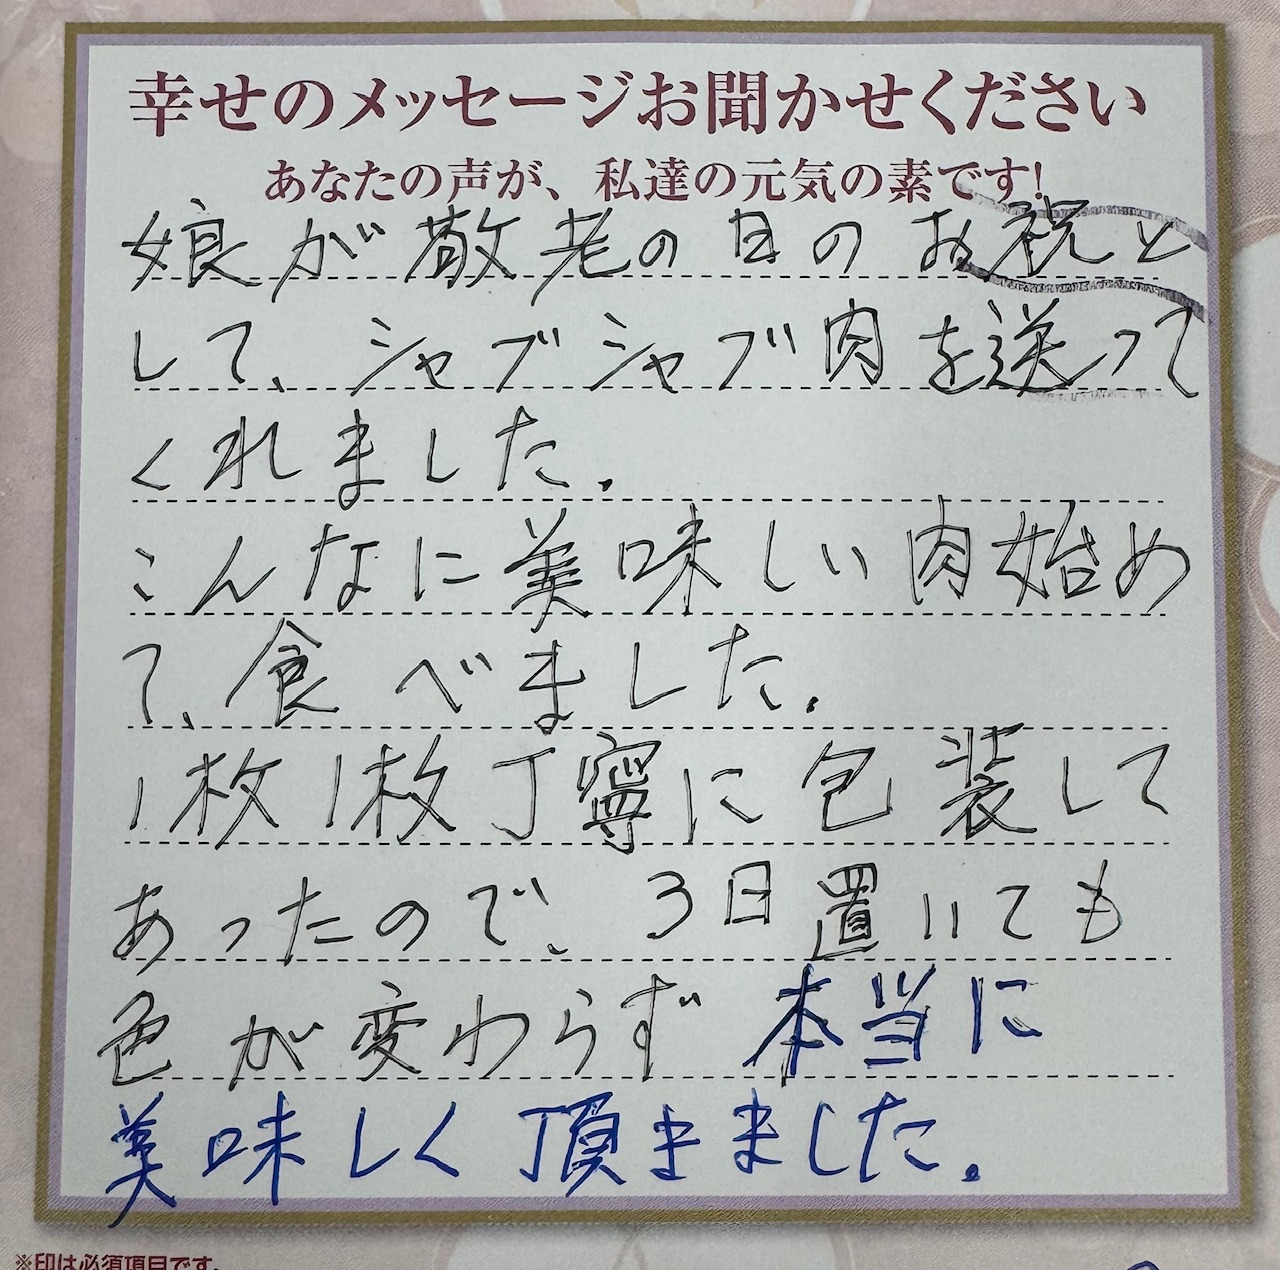 幸せのメッセージお聞かせください
あなたの声が、私達の元気の素です!
娘が敬老の日のお祝と
して、シャブシャブ肉を送って
くれました。
こんなに美味しい肉始め
て、食べました。
1枚1枚丁寧に包装して
あったので、3日置いても
色が変わらず本当に
美味しく頂きました。
※印は必須項目です。